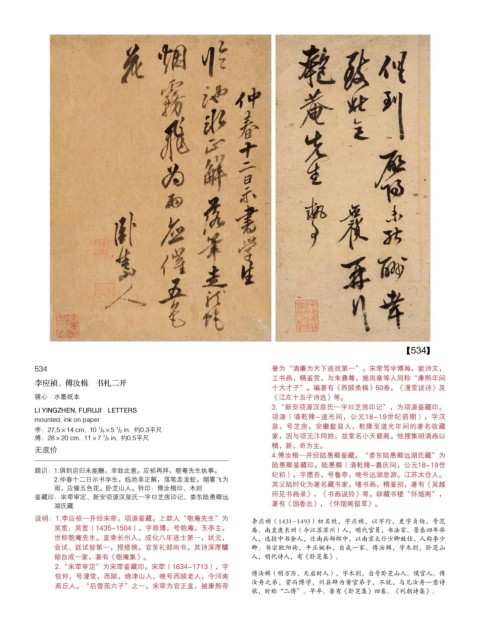 俱到
致此意
匏菴先生執事
仲春十二日示書學生
臨池冰正解落筆走龍蛇
烟霧飛為雨應催五色
花
【534】
534
李应祯、傅汝楫 书札二开
镜心 水墨纸本
LI YINGZHEN, FURUJI LETTERS
mounted, ink on paper
李:27.5×14 cm. 10 7/8×5 1/2 in. 约0.3平尺
傅:28×20 cm. 11×7 7/8 in. 约0.5平尺
无底价
题识:1.俱到启归未能酬,幸致此意。应祯再拜,匏庵先生执事。
2.仲春十二日示书学生,临池冰正解,落笔走龙蛇。烟雾飞为
雨,应催五色花。卧芝山人。钤印:傅汝楫印、木剡
鉴藏印:宋荦审定、新安项源汉泉氏一字曰芝房印记、娄东陆愚卿远
湖氏藏
说明:1.李应祯一开经宋荦,项源鉴藏。上款人“匏庵先生”为
吴宽,吴宽(1435-1504),字原博,号匏庵,玉亭主,
世称匏庵先生。直隶长州人。成化八年进士第一,状元,
会试、廷试皆第一,授修撰。官至礼部尚书。其诗深厚醲
郁自成一家,著有《匏庵集》。
2.“宋荦审定”为宋荦鉴藏印。宋荦(1634-1713),字
牧仲,号漫堂,西陂,绵津山人,晚号西陂老人,今河南
商丘人。“后雪苑六子”之一。宋荦为官正直,被康熙帝
誉为“清廉为天下巡抚第一”。宋荦笃学博闻,能诗文,
工书画,精鉴赏。与朱彝尊、施闰章等人同称“康熙年间
十大才子”。编著有《西陂类稿》50卷、《漫堂说诗》及
《江左十五子诗选》等。
3.“新安项源汉泉氏一字曰芝房印记”,为项源鉴藏印。
项源(清乾隆-道光间,公元18-19世纪前期),字汉
泉,号芝房,安徽歙县人,乾隆至道光年间的著名收藏
家,因与项元汴同姓,故室名小天籁阁。他搜集明清画以
精,新,奇为主。
4.傅汝楫一开经陆愚卿鉴藏。“娄东陆愚卿远湖氏藏”为
陆愚卿鉴藏印。陆愚卿(清乾隆-嘉庆间,公元18-19世
纪初),字愿吾,号鲁亭,晚号远湖息游。江苏太仓人。
其父陆时化为著名藏书家,嗜书画,精鉴别,著有《吴越
所见书画录》,《书画说铃》等。辟藏书楼“怀烟阁”,
著有《国香志》,《怀烟阁留草》。
李应祯(1431-1493)初名甡,字应祯,以字行,更字贞伯,号范
庵,南直隶长洲(今江苏苏州)人,明代官员,书法家。景泰四年举
人,选授中书舍人,迁南兵部郎中,以南京太仆少卿致仕,人称李少
卿。书宗欧阳询,平正婉和,自成一家。傅汝楫,字木剡,卧芝山
人,明代诗人,有《卧芝集》。
傅汝楫(明万历、天启时人),字木剡,自号卧芝山人。侯官人。傅
汝舟之弟,贫而博学,州县辟为黉宫弟子,不就,与兄汝舟一意诗
歌,时称“二傅”。早卒。著有《卧芝集》四卷、《列朝诗集》。